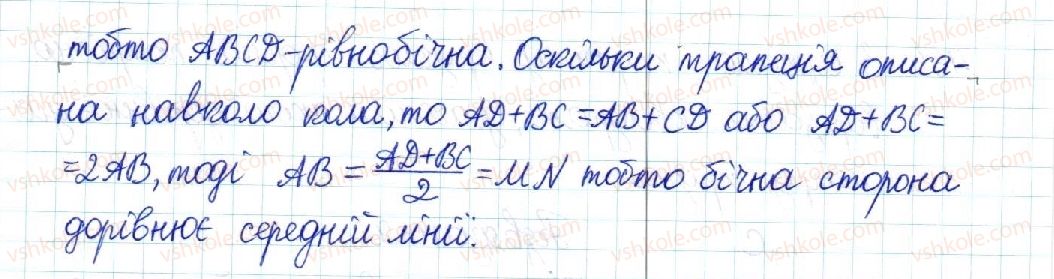 тобто ABCD-рівнобічна. Оскільки трапеція описа-
на навколо кола, то AD+BC=AB+CD або AD+BC=
=2AB, тоді AB = \frac{AD+BC}{2} = MN тобто бічна сторона
дорівнює середній лінії.